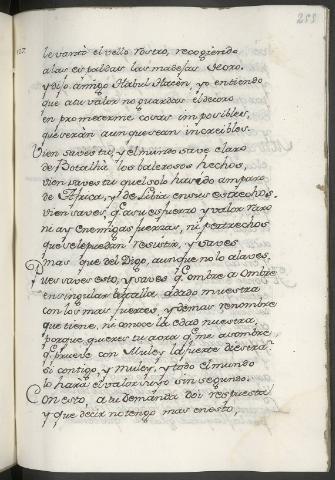 255
127.
levantó el vello rostro, recogiendo
a las espaldas las madejas de oro.
y dijo amigo Habul Hacén, yo entiendo
que a tu valor no guardas el decoro
en prometerme cosas imposibles,
que serán aunque sean increibles.
Vien saves tu, y el mundo save claro
de Botalhá los balerosos hechos,
vien saves tu quel solo ha sido amparo
de Africa, y de Libia en sus estrechos.
vien saves, q̃ a su esfuerzo y valor raro
ni ay enemigas fuerzas, ni pertrechos
que se le puedan resistir, y saves
mas que del digo, aunque no lo alaves.
Pues saves esto, y saves q̃ ombre a ombre
en singular batalla á dado muestra
con los mas fuertes, y demas renombre
que tiene, ni conoce la edad nuestra
porque quieres tu aora q̃ me asombre
q̃ prueve con Muley la fuerte diestra?
si contigo, y Muley, y todo el mundo
lo hará el valor suyo sin segundo.
Con esto, a tu demanda doi respuesta
y que decir no tengo mas en esto,